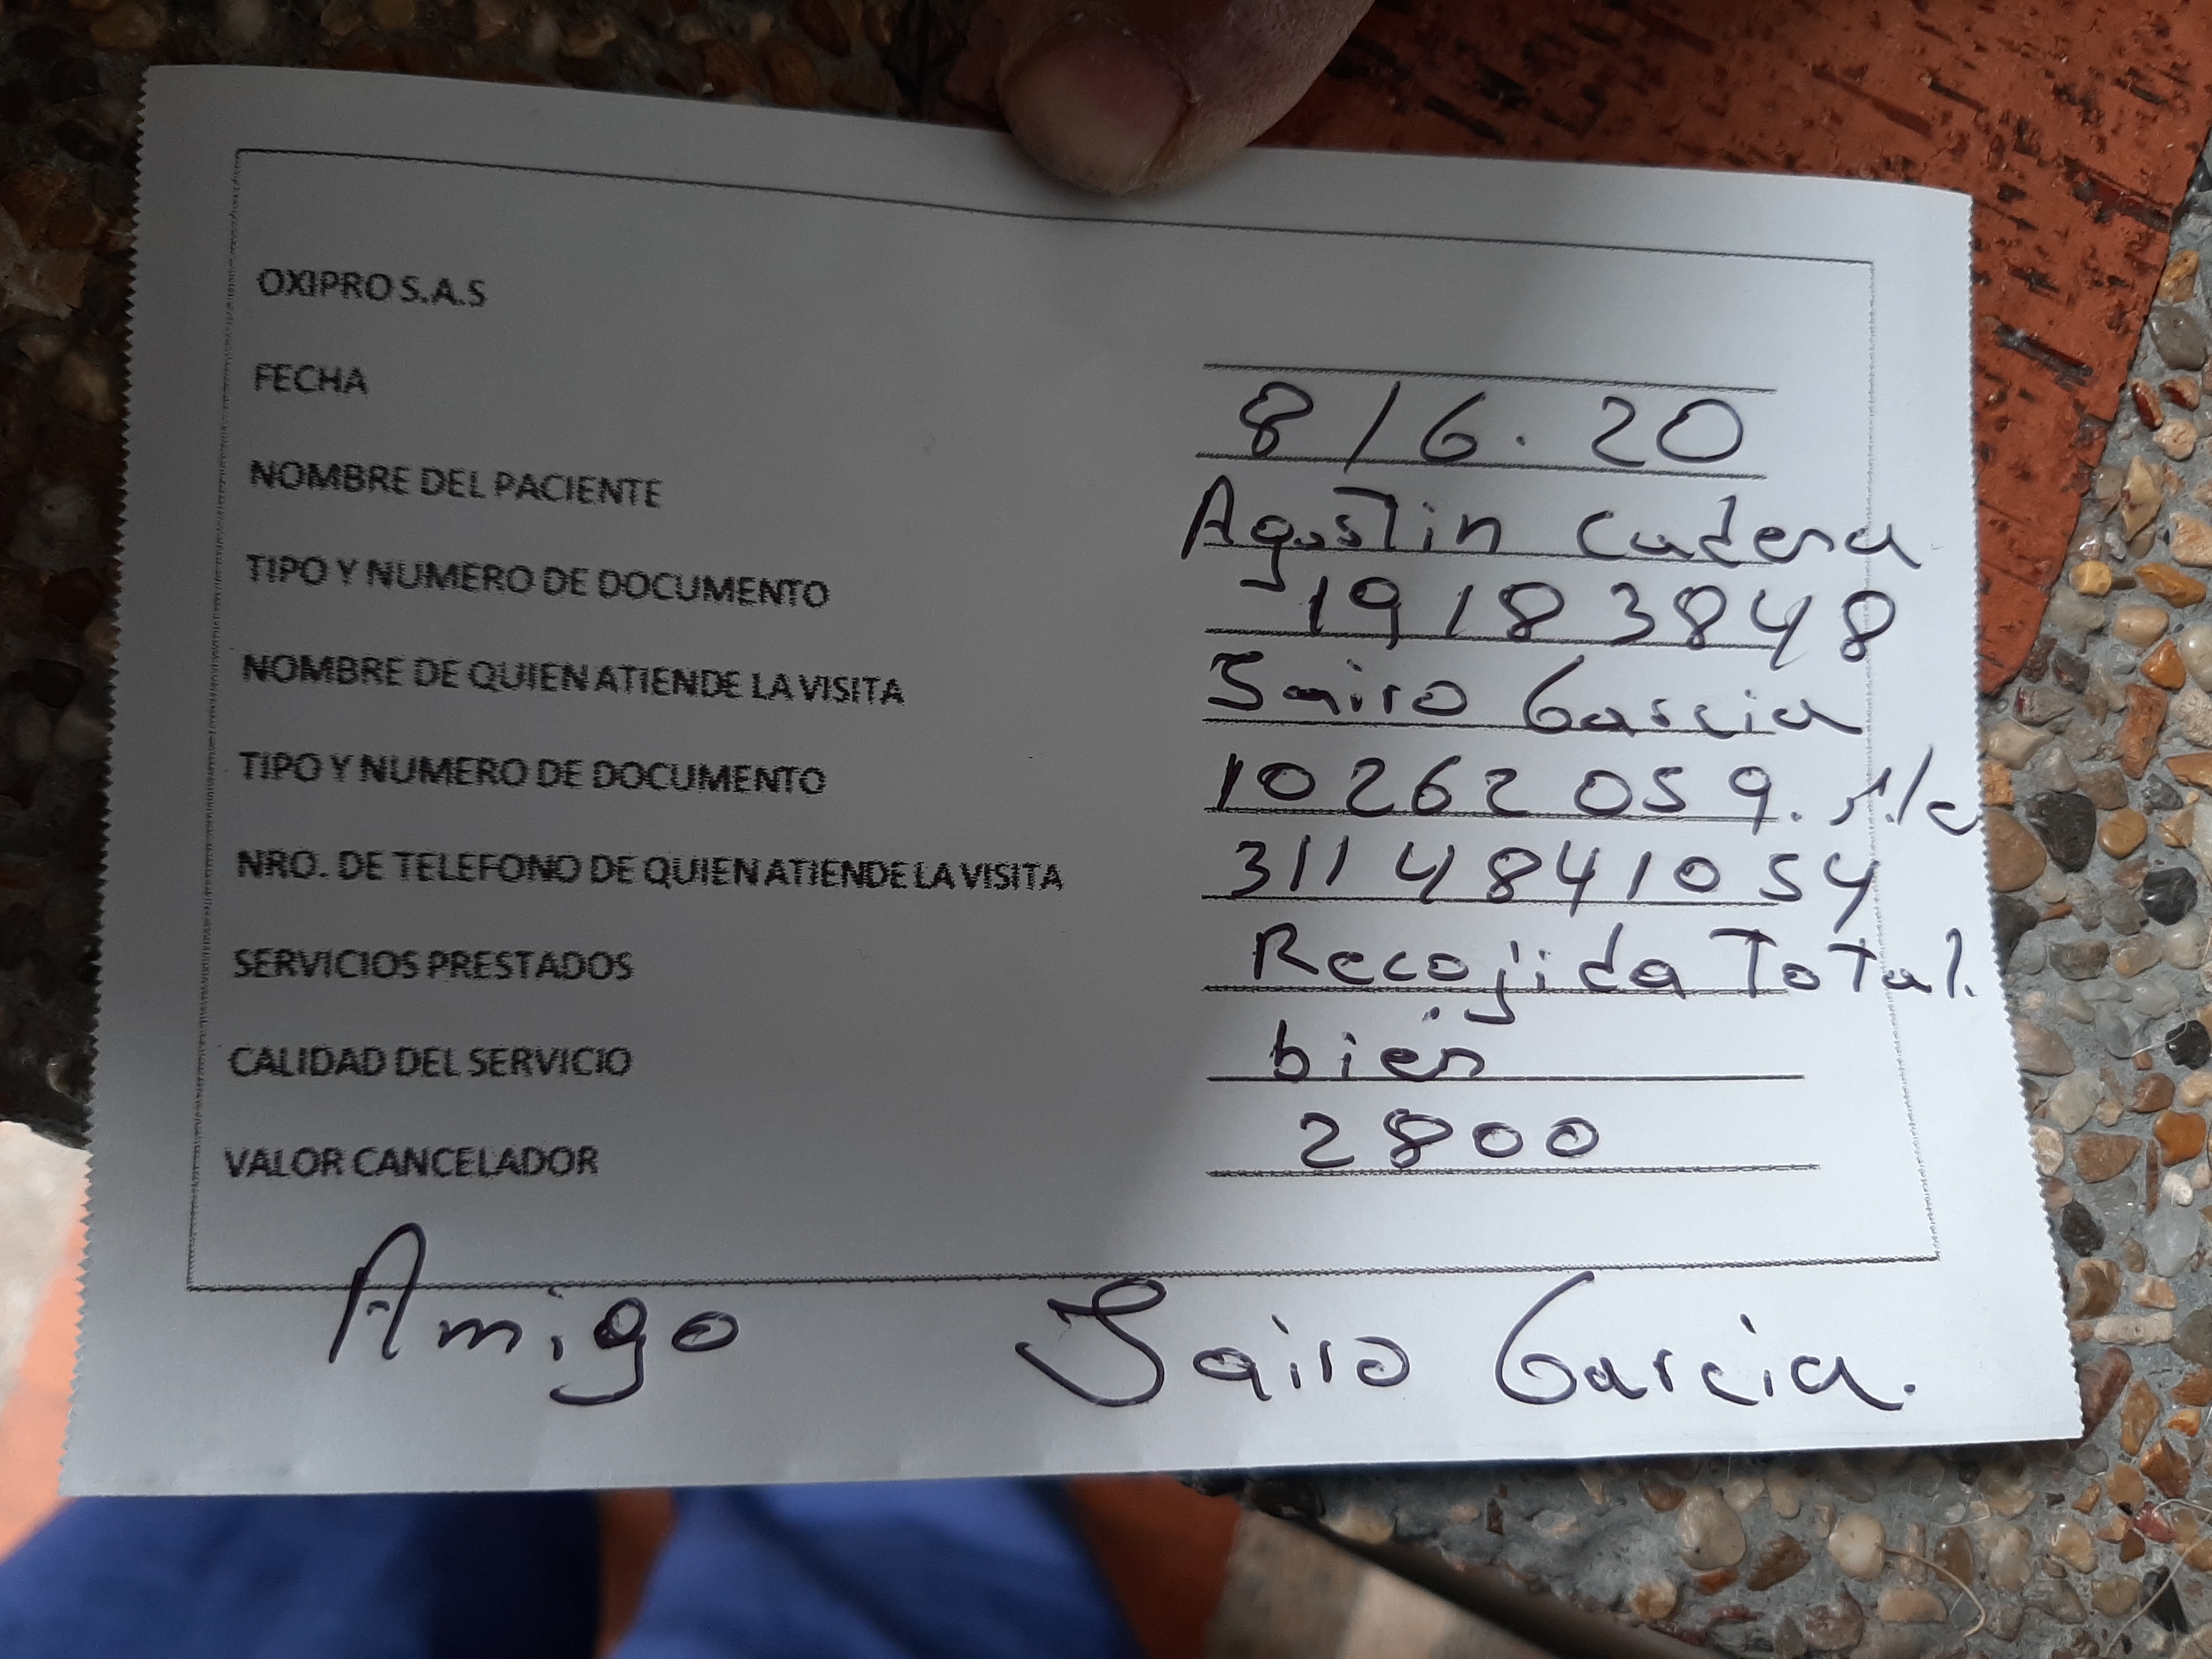 OXIPRO S.A.S
FECHA 8/6.20
NOMBRE DEL PACIENTE Agustin Cadena
TIPO Y NUMERO DE DOCUMENTO 19183848
NOMBRE DE QUIEN ATIENDE LA VISITA Jairo Garcia
TIPO Y NUMERO DE DOCUMENTO 10262059.
NRO. DE TELEFONO DE QUIEN ATIENDE LA VISITA 3114841054
SERVICIOS PRESTADOS Recojida Total.
CALIDAD DEL SERVICIO bien
VALOR CANCELADOR 2800
Amigo Jairo Garcia.